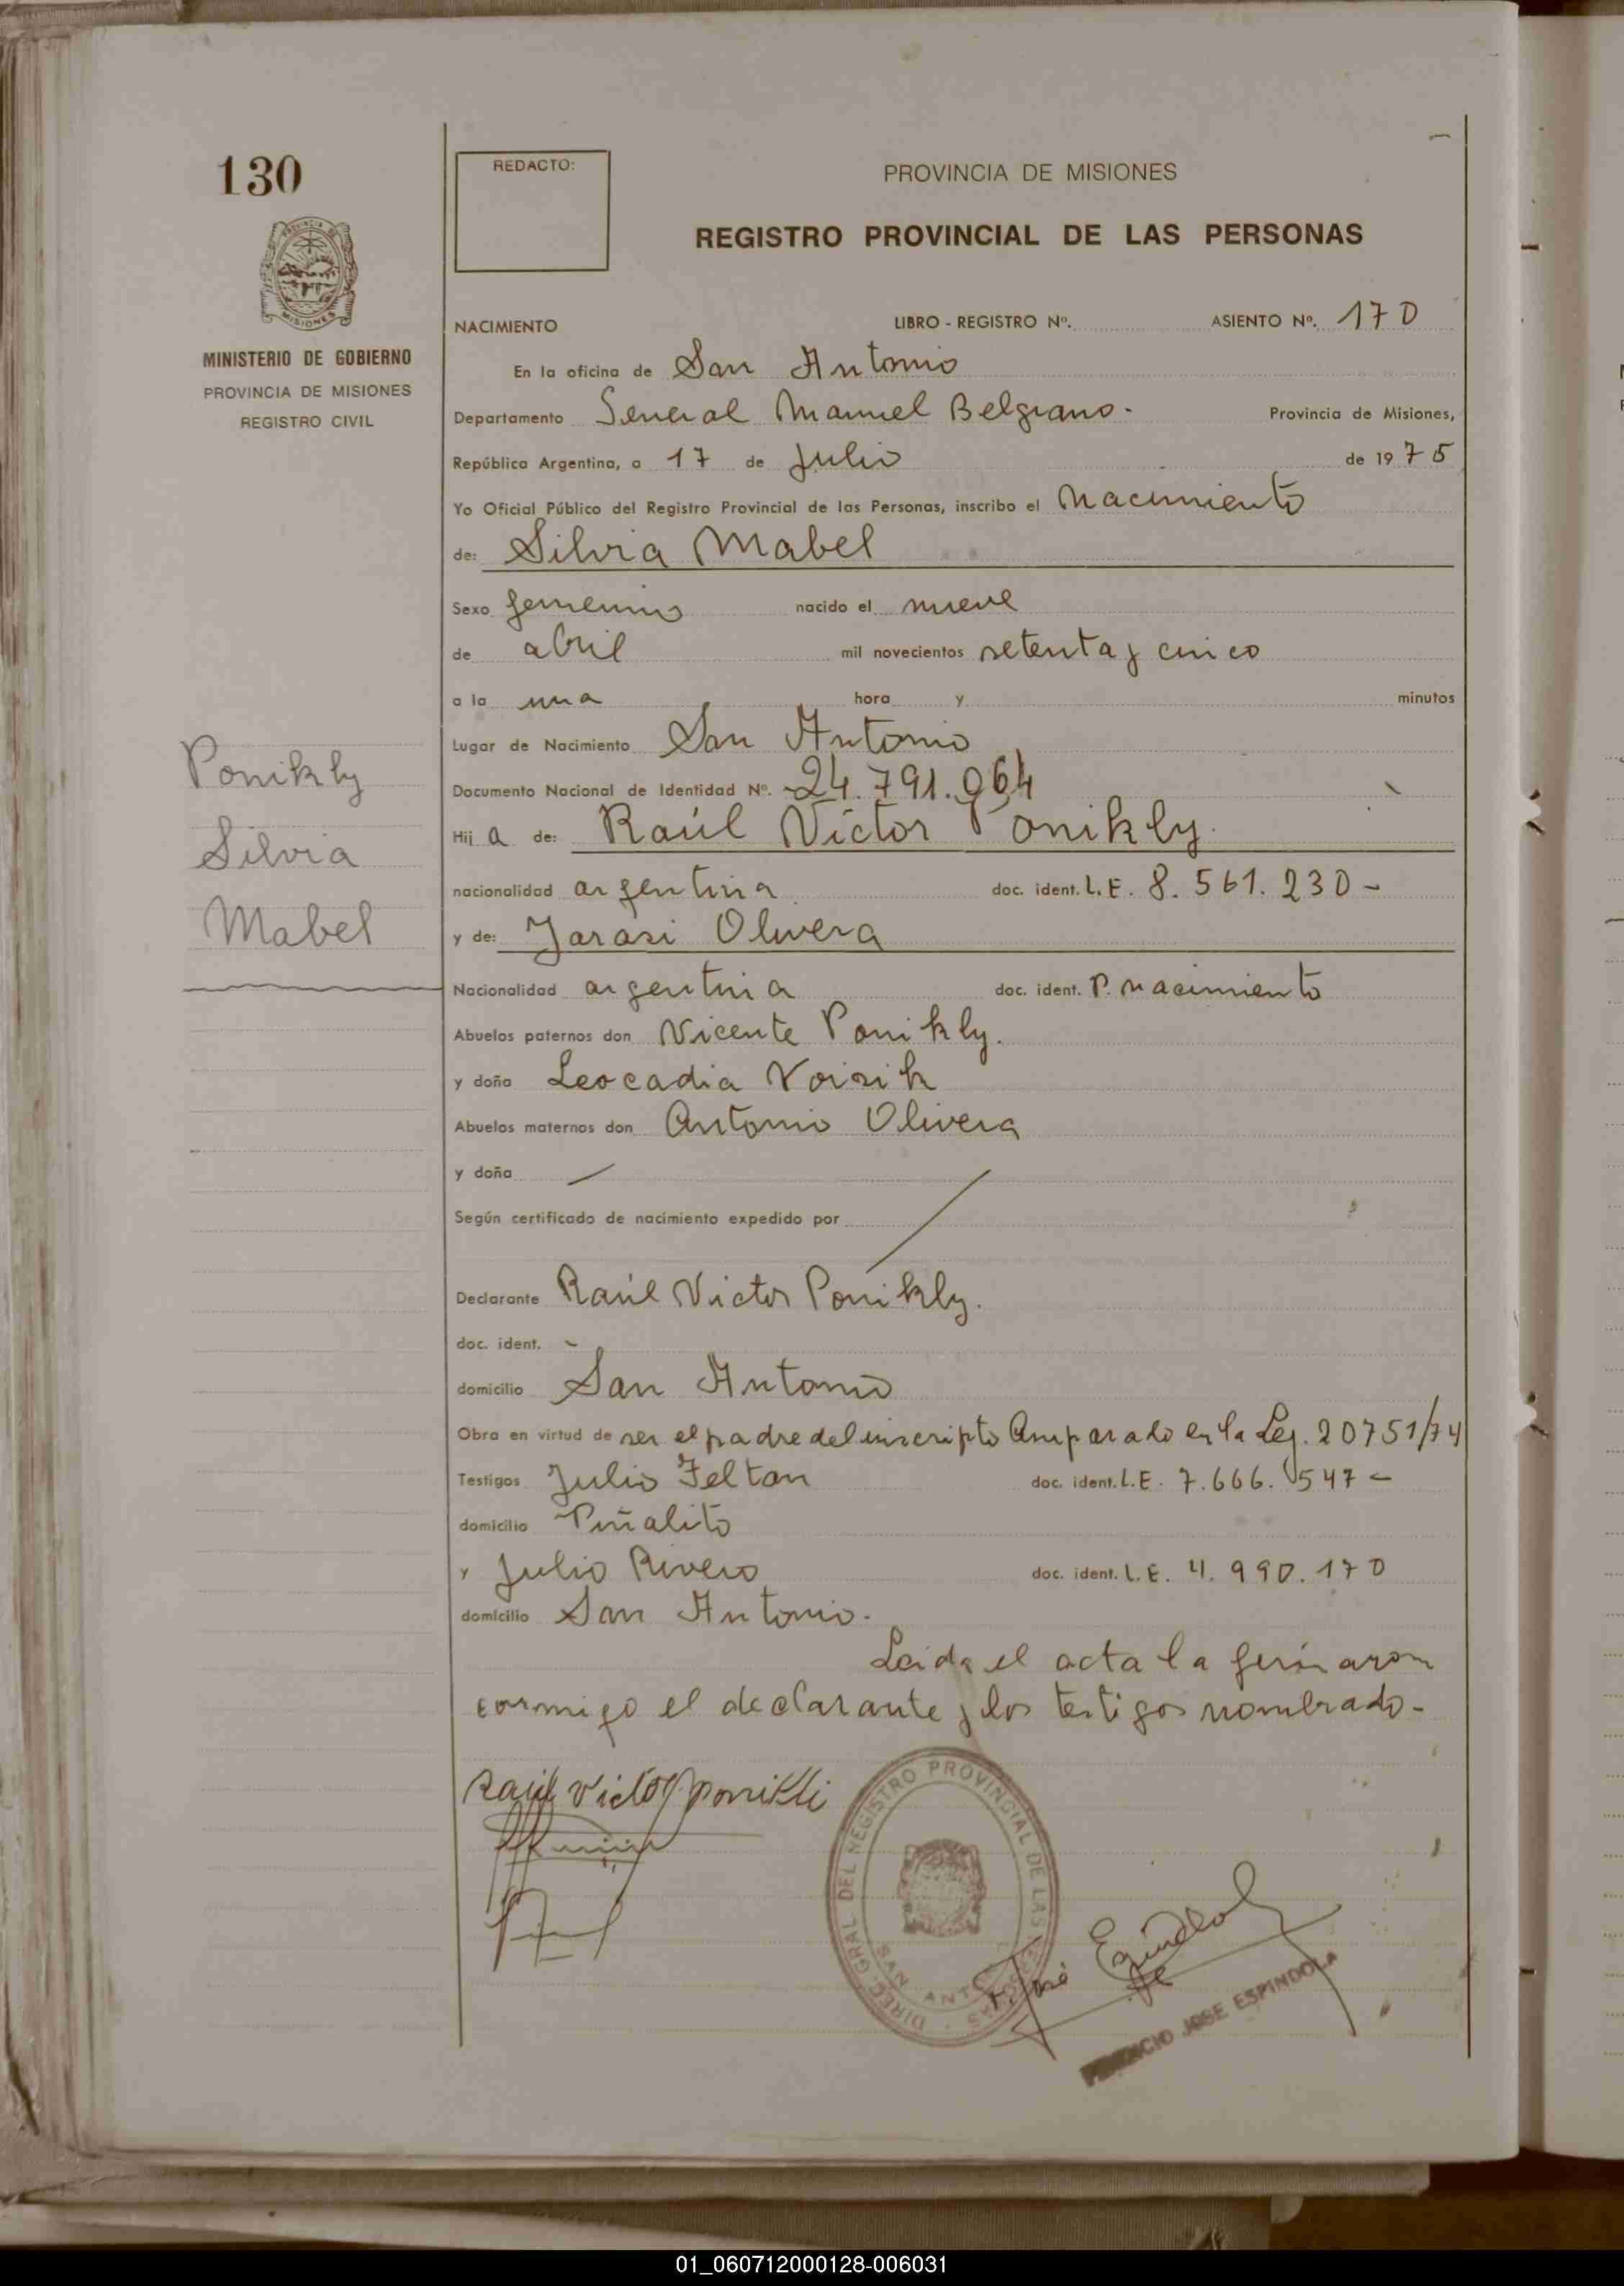 130
MINISTERIO DE GOBIERNO
PROVINCIA DE MISIONES
REGISTRO CIVIL
Ponikly
Silvia
Mabel
REDACTO:
PROVINCIA DE MISIONES
REGISTRO PROVINCIAL DE LAS PERSONAS
NACIMIENTO LIBRO - REGISTRO Nº. ASIENTO Nº. 170
En la oficina de San Antonio
Departamento General Manuel Belgrano. Provincia de Misiones,
República Argentina, a 17 de Julio de 1975
Yo Oficial Público del Registro Provincial de las Personas, inscribo el Nacimiento
de: Silvia Mabel
Sexo femenino nacido el nueve
de abril mil novecientos setenta y cinco
a la una hora y minutos
Lugar de Nacimiento San Antonio
Documento Nacional de Identidad Nº. 24.791.064
Hij a de: Raúl Víctor Ponikly.
nacionalidad argentina doc. ident. L.E. 8.561.230-
y de: Jarasi Olivera
Nacionalidad argentina doc. ident. P. nacimiento
Abuelos paternos don Vicente Ponikly.
y doña Leocadia Voisik
Abuelos maternos don Antonio Olivera
y doña
Según certificado de nacimiento expedido por
Declarante Raúl Victor Ponikly.
doc. ident. -
domicilio San Antonio
Obra en virtud de ser el padre del inscripto Amparado en la Ley. 20751/74
Testigos Julio Feltan doc. ident. L.E. 7.666.547-
domicilio Piñalito
y Julio Rivero doc. ident. L.E. 4.990.170
domicilio San Antonio.
Leida el acta la firmaron
conmigo el declarante y los testigos nombrado-
Raúl Victor Ponikli
DIREC. GRAL DEL REGISTRO PROVINCIAL DE LAS PERSONAS
SAN ANTONIO
José Espindola
JOSE ESPINDOLA
01_060712000128-006031